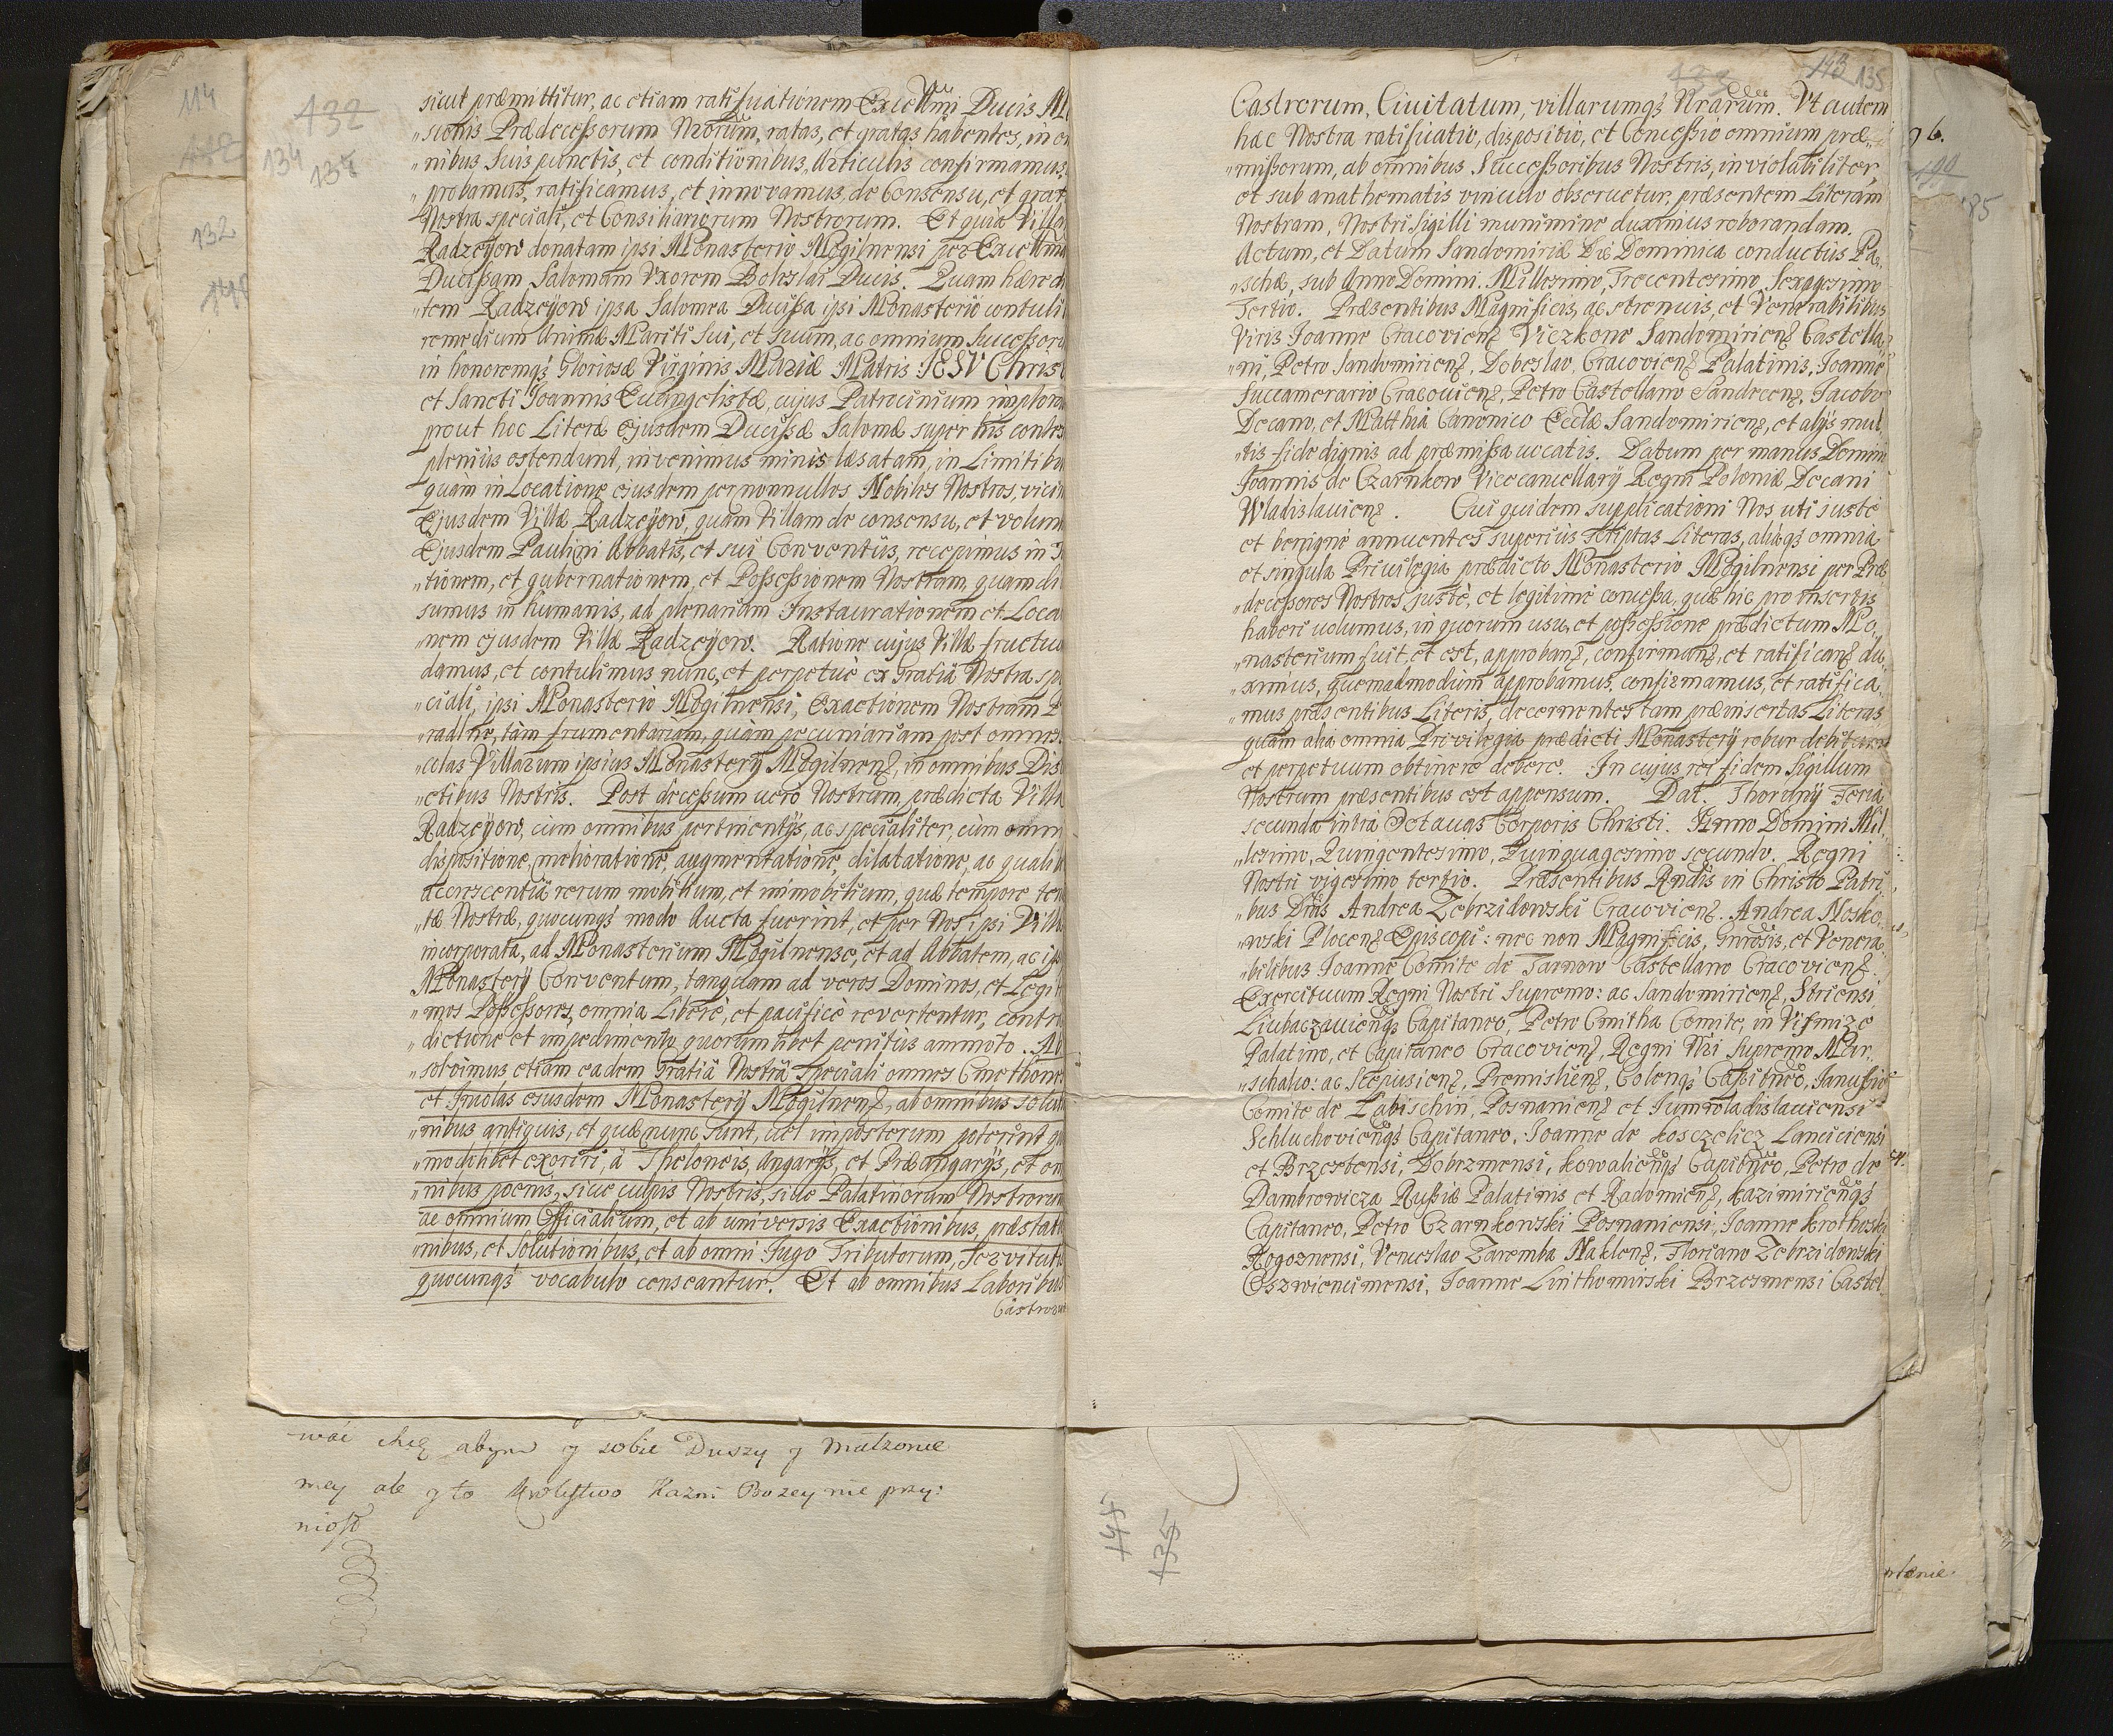 114
132
134
132
sicut præmittitur, ac etiam ratificationem Excellmi Ducis M
„sionis Prædecessorum Nrorum, ratas, et gratas habentes, in o
„nibus suis punctis, et conditionibus, Articulis confirmamus,
„probamus, ratificamus, et innovamus, de Consensu, et grat
Nostra speciali, et Consiliariorum Nostrorum. Et quia Villa
Radzeyow donatam ipsi Monasterio Mogilnensi per Excellma
Ducissam Salomam Uxorem Boleslai Ducis. Quam hæredi
„tem Radzeyow ipsa Salomea Ducissa ipsi Monasterio contuli
remedium Animæ Mariti Sui, et Suum, ac omnium Successoru
in honoremq3 Gloriosæ Virginis Mariæ Matris IESV Christ
et Sancti Joannis Euangelistæ, cujus Patrocinium implora
prout hoc Literæ ejusdem Ducissæ Salomæ super his confes
plenius ostendunt, invenimus minis læsatam, in Limitibu
quam in Locatione ejusdem per nonnullos Nobiles Nostros, vicin
Ejusdem Villæ Radzeyow, quam Villam de consensu, et volun
Ejusdem Paulini Abbatis, et sui Conventûs, recepimus in
„tionem, et gubernationem, et Possessionem Nostram, quam di
sumus in humanis, ad plenariam Instaurationem et Loca
„nem ejusdem Villæ Radzeyow. Ratione cujus Villæ fructuu
damus, et contulimus nunc, et perpetuè ex Gratiâ Nostra spe
„ciali, ipsi Monasterio Mogilnensi, Exactionem Nostram P
„radlne, tàm frumentariam, quàm pecuniariam post omnes
„culas Villarum ipsius Monasterÿ Mogilnens, in omnibus Dis
„ctibus Nostris. Post decessum uero Nostrum, prædicta Villa
Radzeyow, cùm omnibus pertinentÿs, ac specialiter, cùm omni
dispositione, melioratione, augmentatione, dilatatione, ac qualib
accrescentiâ rerum mobilium, et immobilium, quæ tempore ten
„tæ Nostræ, quocunq3 modo Aucta fuerint, et per Nos ipsi Villæ
incorporata, ad Monasterium Mogilnense, et ad Abbatem, ac ips
Monasterÿ Conventum, tanquam ad veros Dominos, et Legit
„mos Possessores, omnia Liberè, et pacificè revertentur, contra
„dictione et impedimento quorumlibet penitùs ammoto. Ab
„solvimus etiam eadem Gratiâ Nostrâ Speciali omnes Cmethones
et Incolas ejusdem Monasterÿ Mogilnens, ab omnibus solut
„nibus antiquis, et quæ nunc sunt, uel impostorum poterint qu
„modolibet exoriri, à Theloneis, Angarÿs, et Præangarÿs, et om
„nibus poenis, siue culpis Nostris, siue Palatinorum Nostrorum
ac omnium Officialium, et ab universis Exactionibus, præstati
„nibus, et Solutionibus, et ab omni Jugo Tributorum, Servituti
quocunq3 vocabulo censeantur. Et ab omnibus Laboribus
Castroru
wać chcę abym y sobie Duszy y Małzonce
mey ale y to Krolestwo Kazni Bozey nie przy:
niosł
143 135
Castrorum, Ciuitatum, villarumq3 Nrarum. Vt autem
hæc Nostra ratificatio, dispositio, et Concessio omnium præ„
„missorum, ab omnibus Successoribus Nostris, inviolabiliter,
et sub anathematis vinculo obseruetur, præsentem Literam
Nostram, Nostri Sigilli munimine duximus roborandam.
Actum, et Datum Sandomiriæ Die Dominica conductûs Pa„
„schæ, sub Anno Domini Millesimo, Trecentesimo, Sexagesimo
Tertio. Præsentibus Magnificis, ac strenuis, et Venerabilibus
Viris Joanne Cracoviens, Viezkone Sandomiriens Castella„
„ni, Petro Sandomiriens, Dobeslao, Cracoviens Palatinis, Joanne
Succamerario Cracouiens, Petro Castellano Sandecens, Jacobo
Decano, et Matthia Canonico Ecclæ Sandomiriens, et alÿs mul„
„tis fide dignis ad præmissa uocatis. Datum per manus Domini
Joannis de Czarnkow Vicecancellarÿ Regni Poloniæ Decani
Wladislauiens. Cui quidem supplicationi Nos uti justè
et benignè annuentes superiùs scriptas Literas, aliàq3 omnia
et singula Priuilegia prædicto Monasterio Mogilnensi per Præ
„decessores Nostros justè, et legitimè concessa, quæ hic pro insertis
haberi uolumus, in quorum usu, et possessione prædictum Mo„
„nasterium fuit, et est, approbans, confirmans, et ratificans du„
„ximus, quemadmodum approbamus, confirmamus, et ratifica„
„mus præsentibus Literis, decernentes tam præinsertas Literas,
quam alia omnia Privilegia prædicti Monasterÿ robur debitum
et perpetuum obtinere debere. In cujus rei fidem Sigillum
Nostrum præsentibus est appensum. Dat. Thorunÿ Feria
secunda intra Octauas Corporis Christi. Anno Domini Mil„
„lesimo, Quingentesimo, Quinquagesimo secundo. Regni
Nostri vigesimo tertio. Præsentibus Rndis in Christo Patri„
„bus Dnis Andrea Zebrzidowski Cracoviens. Andrea Nosko„
„wski Plocens Episcopi: nec non Magnificis, Gnrosis, et Venera„
„bilibus Joanne Comite de Tarnow Castellano Cracoviens.
Exercituum Regni Nostri Supremo: ac Sandomiriens, Striensi
Liubaczouiensq3 Capitaneo, Petro Cmitha Comite, in Visnize
Palatino, et Capitaneo Cracoviens, Regni Nri Supremo Mar„
„schalco: ac Scepusiens, Premisliens, Colensq3 Capitneo, Janussio
Comite de Labischin, Posnaniens et Juniwladislauiensi
Schluchoviensq3 Capitaneo, Joanne de Kosczelicz Lanciciensi
et Brzestensi, Dobrzinensi, Kowaliensq3 Capitneo, Petro de
Dambrowicza Russiæ Palatinis et Radomiens, Kazimiriensq3
Capitaneo, Petro Czarnkowski Posnaniensi, Joanne Krothoski
Rogoznensi, Venceslao Zaremba Naklens, Floriano Zebrzidowski
Oszwiencimensi, Joanne Linthomirski Brzesinensi Castel„
145
135
85